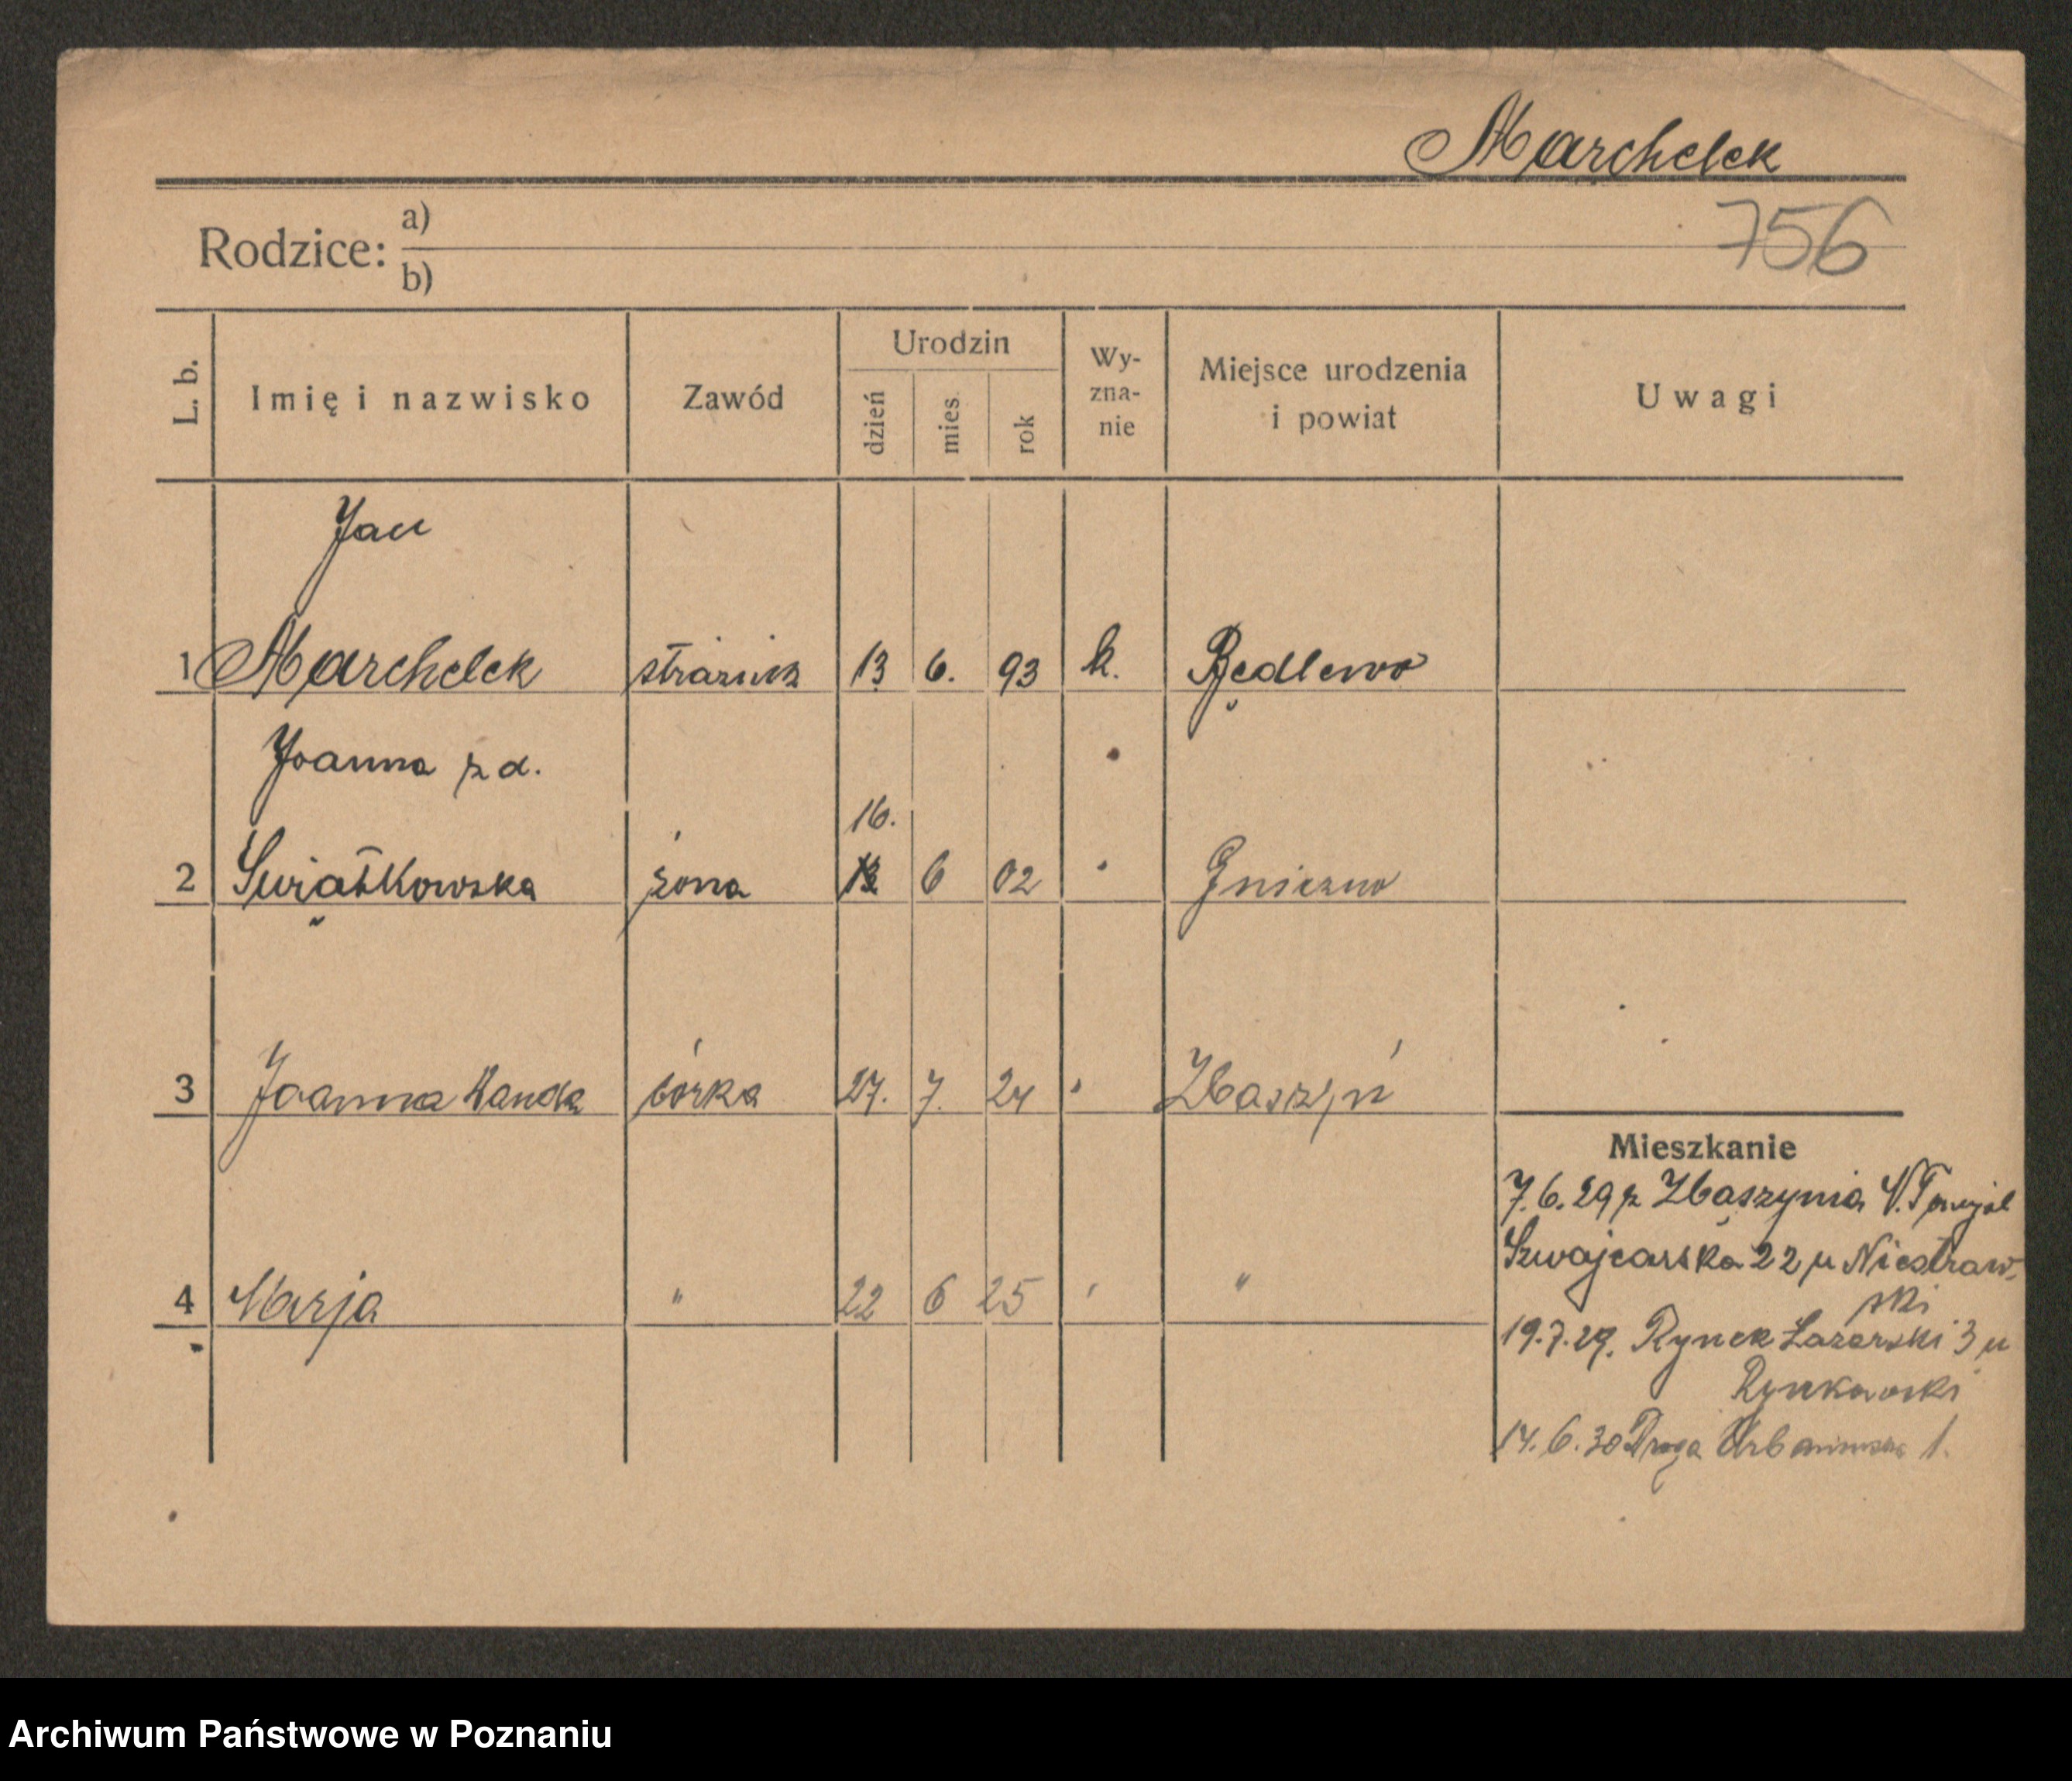 Marchelek
Rodzice: a)
b)
756
L. b.
Imię i nazwisko
Zawód
Urodzin
dzień
mies.
rok
Wy-
zna-
nie
Miejsce urodzenia
i powiat
Uwagi
Jan
1 Marchelek strażnik 13 6. 93 k. Będlewo
Joanna z d.
16.
2 Świątkowska żona 13 6 02 " Gniezno
3 Joanna Wanda córka 27. 7. 24 " Zbąszyń
Mieszkanie
7.6.29 z Zbąszynia N. Tomyśl
Szwajcarska 22 u Niestraw-
ski
4 Marja " 22 6 25 " "
19.7.29. Rynek Łazarski 3 u
Rynkowski
14.6.30 Droga Urbanowska 1.
Archiwum Państwowe w Poznaniu